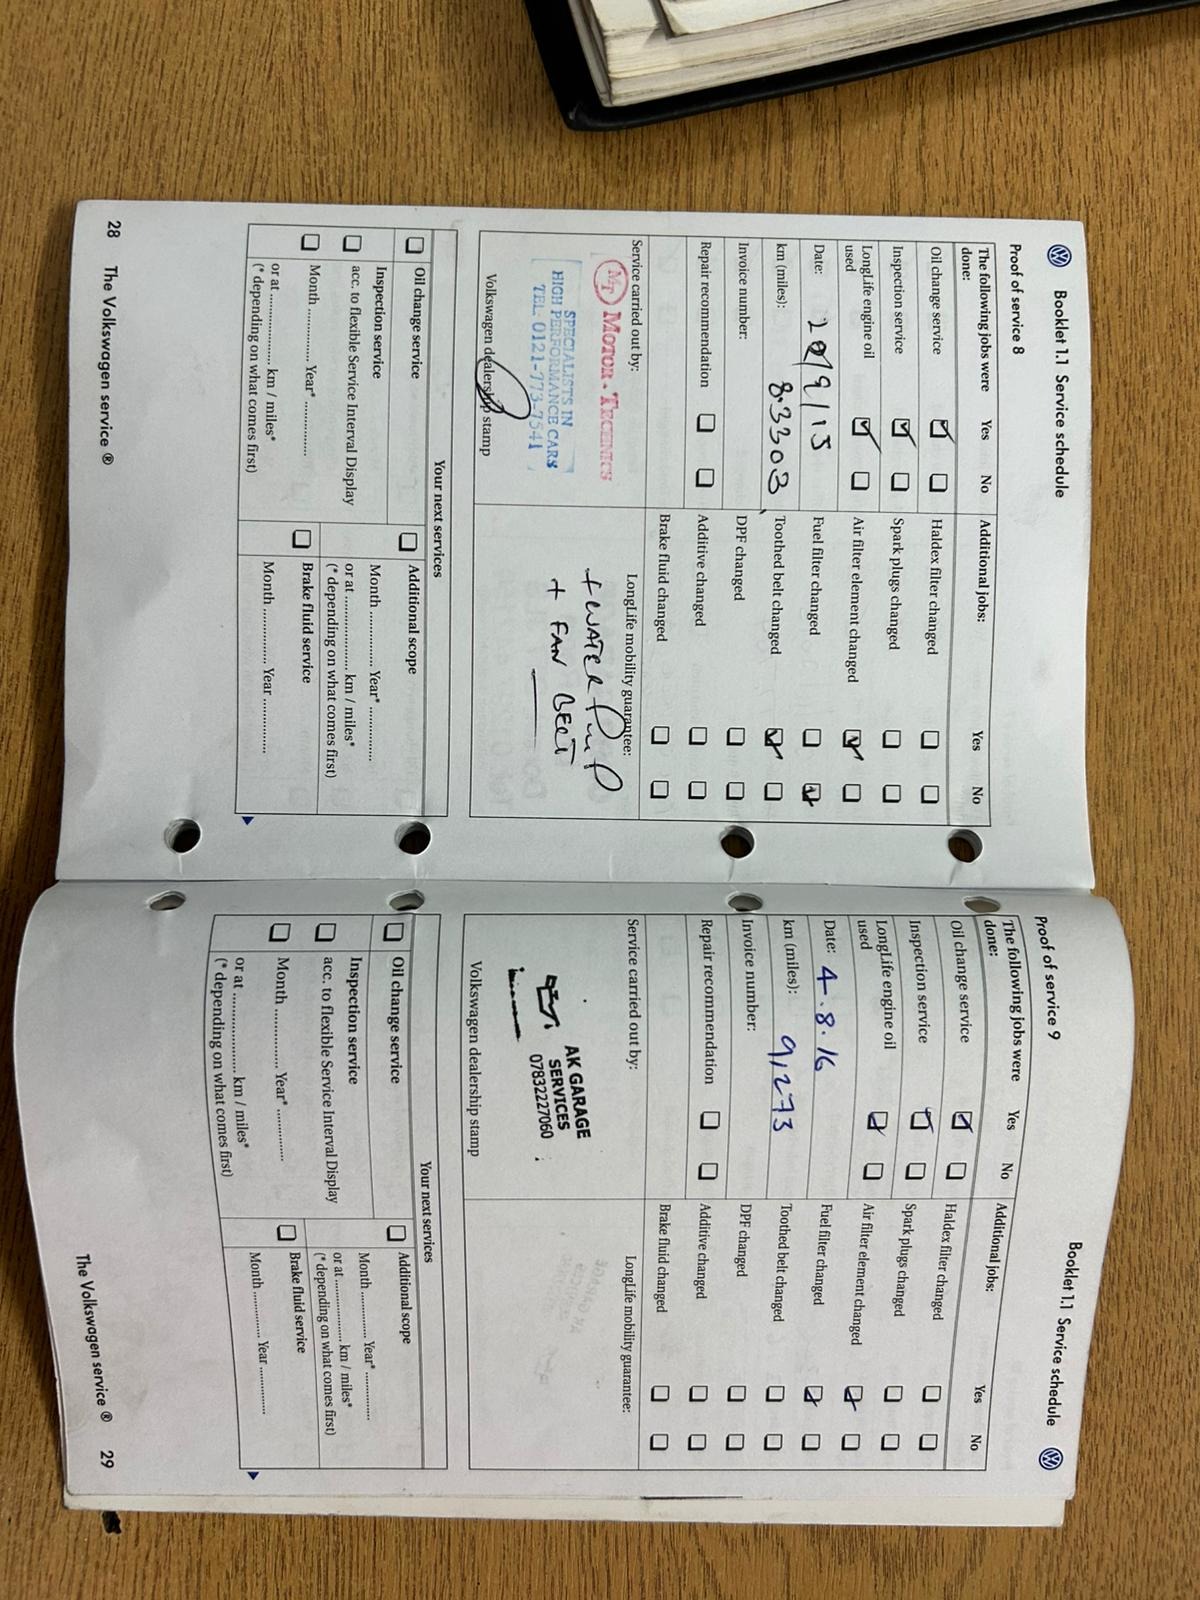 Booklet 1.1 Service schedule
Proof of service 8
The following jobs were done:
Yes
No
Additional jobs:
Yes
No
Oil change service
Haldex filter changed
Inspection service
Spark plugs changed
LongLife engine oil used
Air filter element changed
Date: 20/9/15
Fuel filter changed
km (miles): 83303
Toothed belt changed
Invoice number:
DPF changed
Repair recommendation
Additive changed
Brake fluid changed
Service carried out by:
LongLife mobility guarantee:
MT MOTOR-TECHNICS
SPECIALISTS IN
HIGH PERFORMANCE CARS
TEL: 0121-773-7541
+ WATER PUMP
+ FAN BELT
Volkswagen dealership stamp
Your next services
Oil change service
Additional scope
Inspection service
acc. to flexible Service Interval Display
Month .............. Year* ..............
or at .............. km / miles*
(* depending on what comes first)
Month .............. Year* ..............
or at .............. km / miles*
(* depending on what comes first)
Brake fluid service
Month .............. Year ..............
28 The Volkswagen service ®
Booklet 1.1 Service schedule
Proof of service 9
The following jobs were done:
Yes
No
Additional jobs:
Yes
No
Oil change service
Haldex filter changed
Inspection service
Spark plugs changed
LongLife engine oil used
Air filter element changed
Date: 4.8.16
Fuel filter changed
km (miles): 91273
Toothed belt changed
Invoice number:
DPF changed
Repair recommendation
Additive changed
Brake fluid changed
Service carried out by:
LongLife mobility guarantee:
AK GARAGE
SERVICES
07832227060
Volkswagen dealership stamp
Your next services
Oil change service
Additional scope
Inspection service
acc. to flexible Service Interval Display
Month .............. Year* ..............
or at .............. km / miles*
(* depending on what comes first)
Month .............. Year* ..............
or at .............. km / miles*
(* depending on what comes first)
Brake fluid service
Month .............. Year ..............
The Volkswagen service ® 29